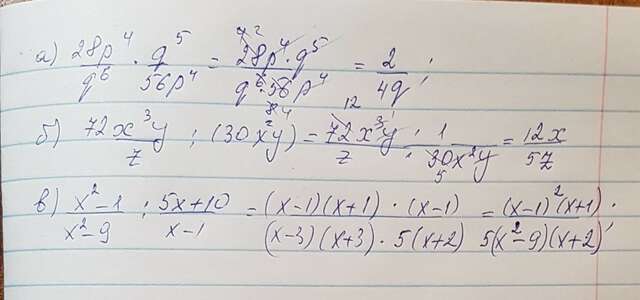 а) 28p⁴/q⁶ · q⁵/56p⁴ = 28p⁴·q⁵/q⁶·56p⁴ = 2/4q ;
б) 72x³y/z : (30x²y) = 72x³y/z · 1/30x²y = 12x/5z
в) x²-1/x²-9 : 5x+10/x-1 = (x-1)(x+1)·(x-1)/(x-3)(x+3)·5(x+2) = (x-1)²(x+1)/5(x²-9)(x+2) ;